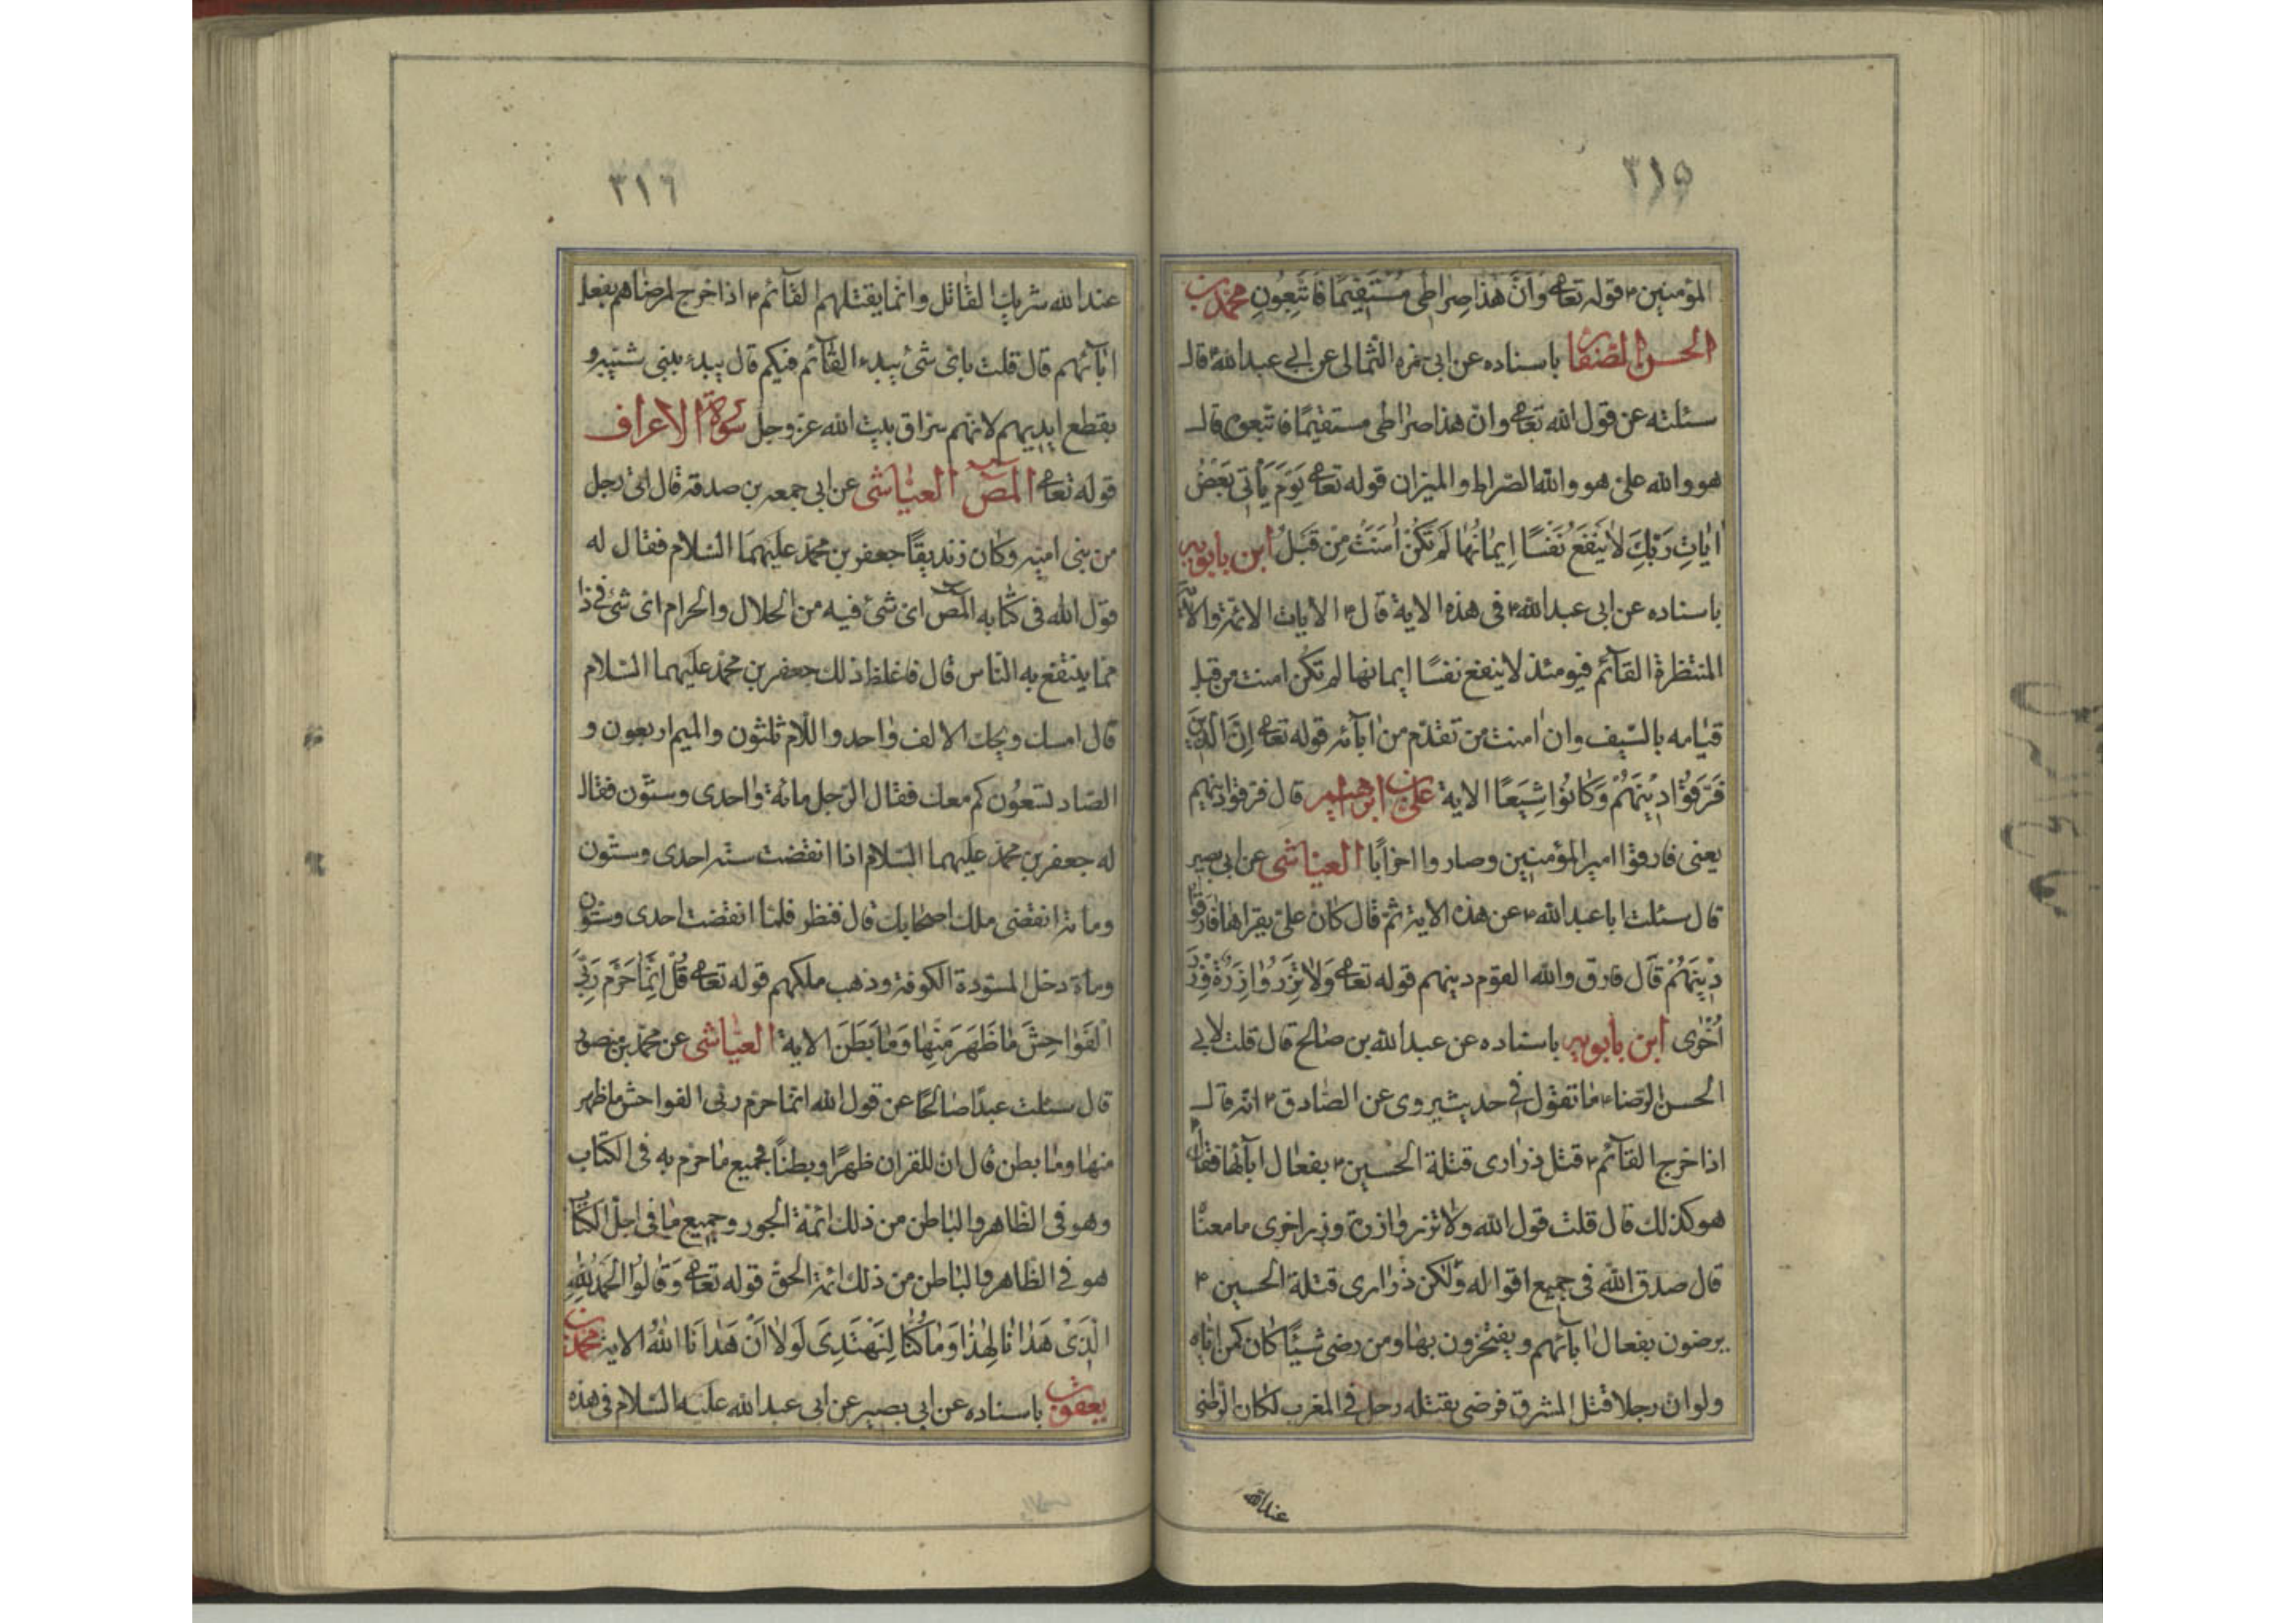 ٣١٥
المؤمنين ٢ قوله تعا وَاَنَّ هٰذا صِراطى مُسْتَقيمًا فَاتَّبِعُونِ محمد بن
الحسن الصفار باسناده عن ابى حمزه الثمالى عن ابى عبدالله ٢ قال
سئلته عن قول الله تعا وان هذا صراطى مستقيمًا فاتبعوه قال
هو والله على هو والله الصراط والميزان قوله تعا يَوْمَ يَأتى بَعْضُ
اٰياتِ رَبِّكَ لاٰ يَنْفَعُ نَفْسًا اِيمٰانُهٰا لَمْ تَكُنْ اٰمَنَتْ مِنْ قَبْلُ ابن بابويه
باسناده عن ابى عبدالله ٢ فى هذه الاية قال ٢ الايات الائمة والاية
المنتظرة القآئم فيومئذ لا ينفع نفسًا ايمانها لم تكن امنت من قبل
قيامه بالسّيف وان امنت من تقدّم من اٰبآئه قوله تعا اِنَّ الَّذينَ
فَرَّقُوْا دِيْنَهُمْ وَكٰانُوْا شِيَعًا الاية على بن ابرهيم قال فرقوا دينهم
يعنى فارقوا امير المؤمنين وصاروا احزابًا العياشى عن ابى بصير
قال سئلت ابا عبدالله ٢ عن هذه الاية ثم قال كان على يقراها فارقوا
دِيْنَهُمْ قال فارق والله القوم دينهم قوله تعا وَلاٰ تَزِرُ وٰازِرَةٌ وِزْرَ
اُخْرٰى ابن بابويه باسناده عن عبدالله بن صالح قال قلت لابى
الحسن الرضا ٢ ما تقول فى حديث يروى عن الصادق ٢ انه قال
اذا خرج القآئم ٢ قتل ذرارى قتلة الحسين ٢ بفعال ابآئها فقال
هو كذلك قال قلت قول الله ولا تزر وازرة وزر اخرى ما معناه
قال صدق الله فى جميع اقواله ولكن ذرارى قتلة الحسين ٢
يرضون بفعال اٰبآئهم ويفتخرون بها ومن رضى شيئًا كان كمن اتاه
ولو ان رجلا قتل المشرق فرضى بقتله رجل فى المغرب لكان الراضى
عندالله
٣١٦
عندالله شريك القاتل وانما يقتلهم القآئم ٢ اذا خرج لرضاهم بفعل
اٰبآئهم قال قلت باى شئ يبدء القآئم فيكم قال يبدء ببنى شيبه و
يقطع ايديهم لانهم سراق بيت الله عز وجل سورة الاعراف
قوله تعا المص العياشى عن ابى جمعه بن صدقه قال اتى رجل
من بنى اميه وكان زنديقًا جعفر بن محمد عليهما السلام فقال له
قول الله فى كتابه المص اى شئ فيه من الحلال والحرام اى شئ فى ذا
مما ينتفع به الناس قال فاغلظ ذلك جعفر بن محمد عليهما السلام
قال امسك ويحك الالف واحد واللام ثلثون والميم اربعون و
الصاد تسعون كم معك فقال الرجل مائة واحدى وستون فقال
له جعفر بن محمد عليهما السلام اذا انقضت سنه احدى وستون
ومائة انقضى ملك اصحابك قال فنظر فلما انقضت احدى وستون
ومأة دخل المسودة الكوفة وذهب ملكهم قوله تعا قُلْ اِنَّمٰا حَرَّمَ رَبِّىَ
الْفَوٰاحِشَ مٰا ظَهَرَ مِنْهٰا وَمٰا بَطَنَ الاية العياشى عن محمد بن منصور
قال سئلت عبدًا صالحًا عن قول الله انما حرم ربى الفواحش ما ظهر
منها وما بطن قال ان للقران ظهرًا وبطنًا فجميع ما حرم به فى الكتاب
وهو فى الظاهر والباطن من ذلك ائمة الجور وجميع ما فى احل الكتاب
هو فى الظاهر والباطن من ذلك ائمة الحق قوله تعا وَقٰالُوا الْحَمْدُ لِلّٰهِ
الَّذى هَدٰانٰا لِهٰذٰا وَمٰا كُنّٰا لِنَهْتَدِىَ لَوْلاٰ اَنْ هَدٰانَا اللهُ الاية محمد بن
يعقوب باسناده عن ابى بصير عن ابى عبدالله عليه السلام فى هذه